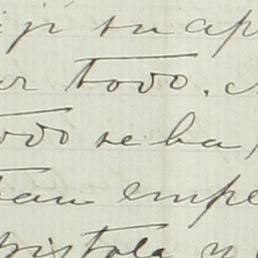 su ap
ar todo.
odo se ha
tan empe
pistola y